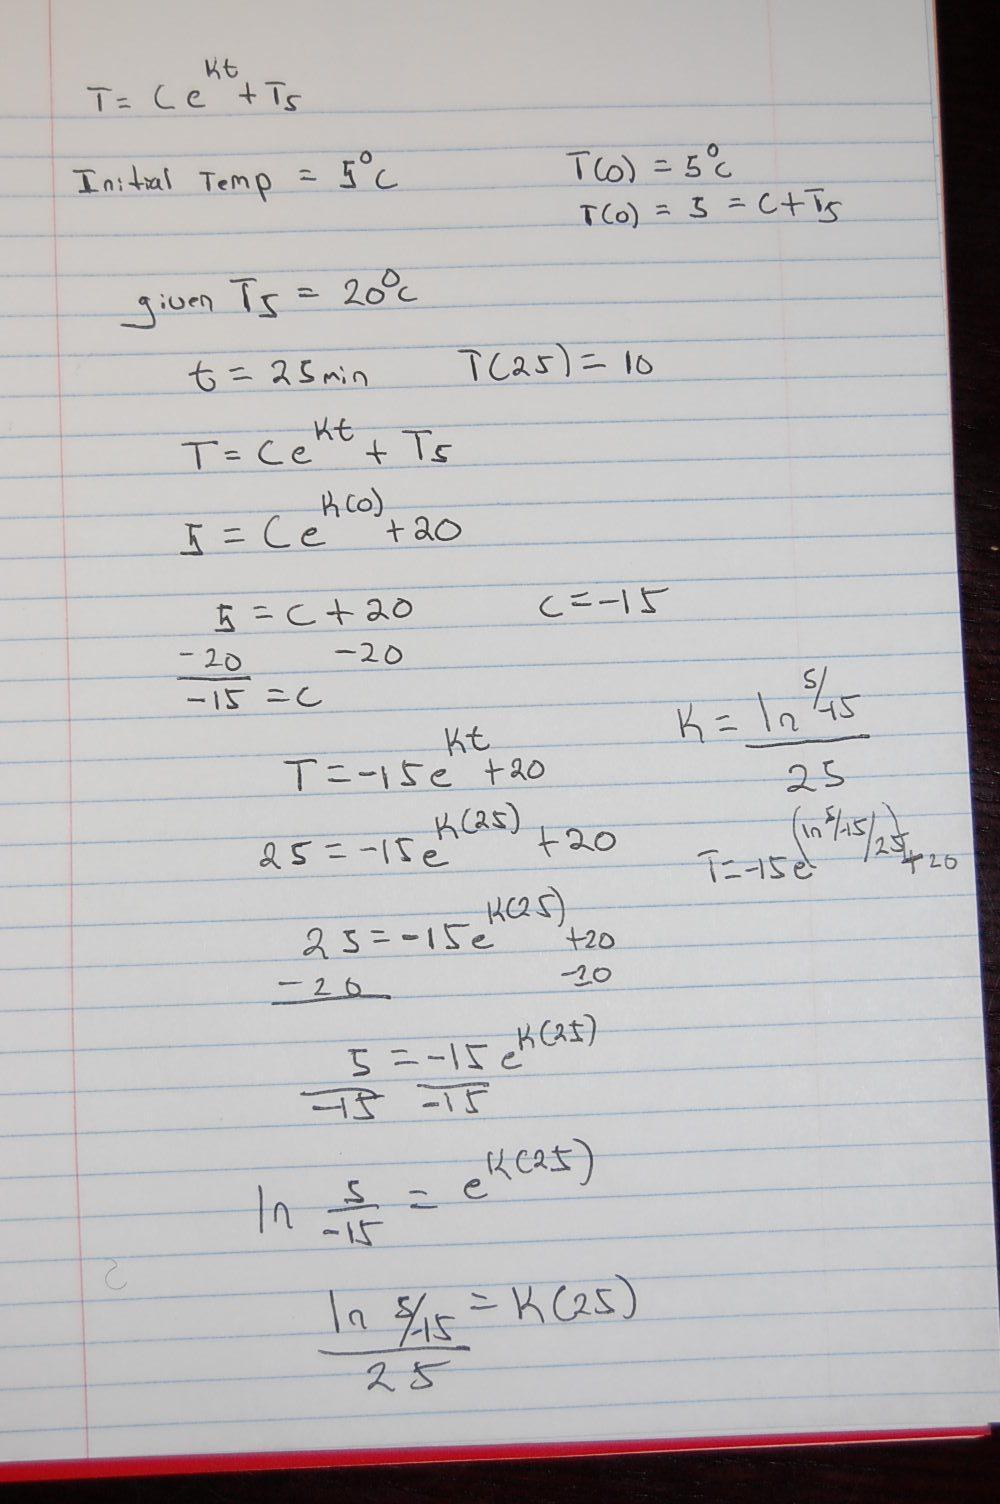 T = Ce^Kt + T5
Initial Temp = 5°C
T(0) = 5°C
T(0) = 5 = C + T5
given T5 = 20°C
t = 25min T(25) = 10
T = Ce^Kt + T5
5 = Ce^K(0) + 20
5 = C + 20 C = -15
-20 -20
-15 = C
T = -15e^Kt + 20
25 = -15e^K(25) + 20
25 = -15e^K(25) +20
-20 -20
5 = -15e^K(25)
-15 -15
ln 5/-15 = e^K(25)
ln 5/-15 = K(25)
25
K = ln 5/-15
25
T = -15e^(ln 5/-15/25) + 20